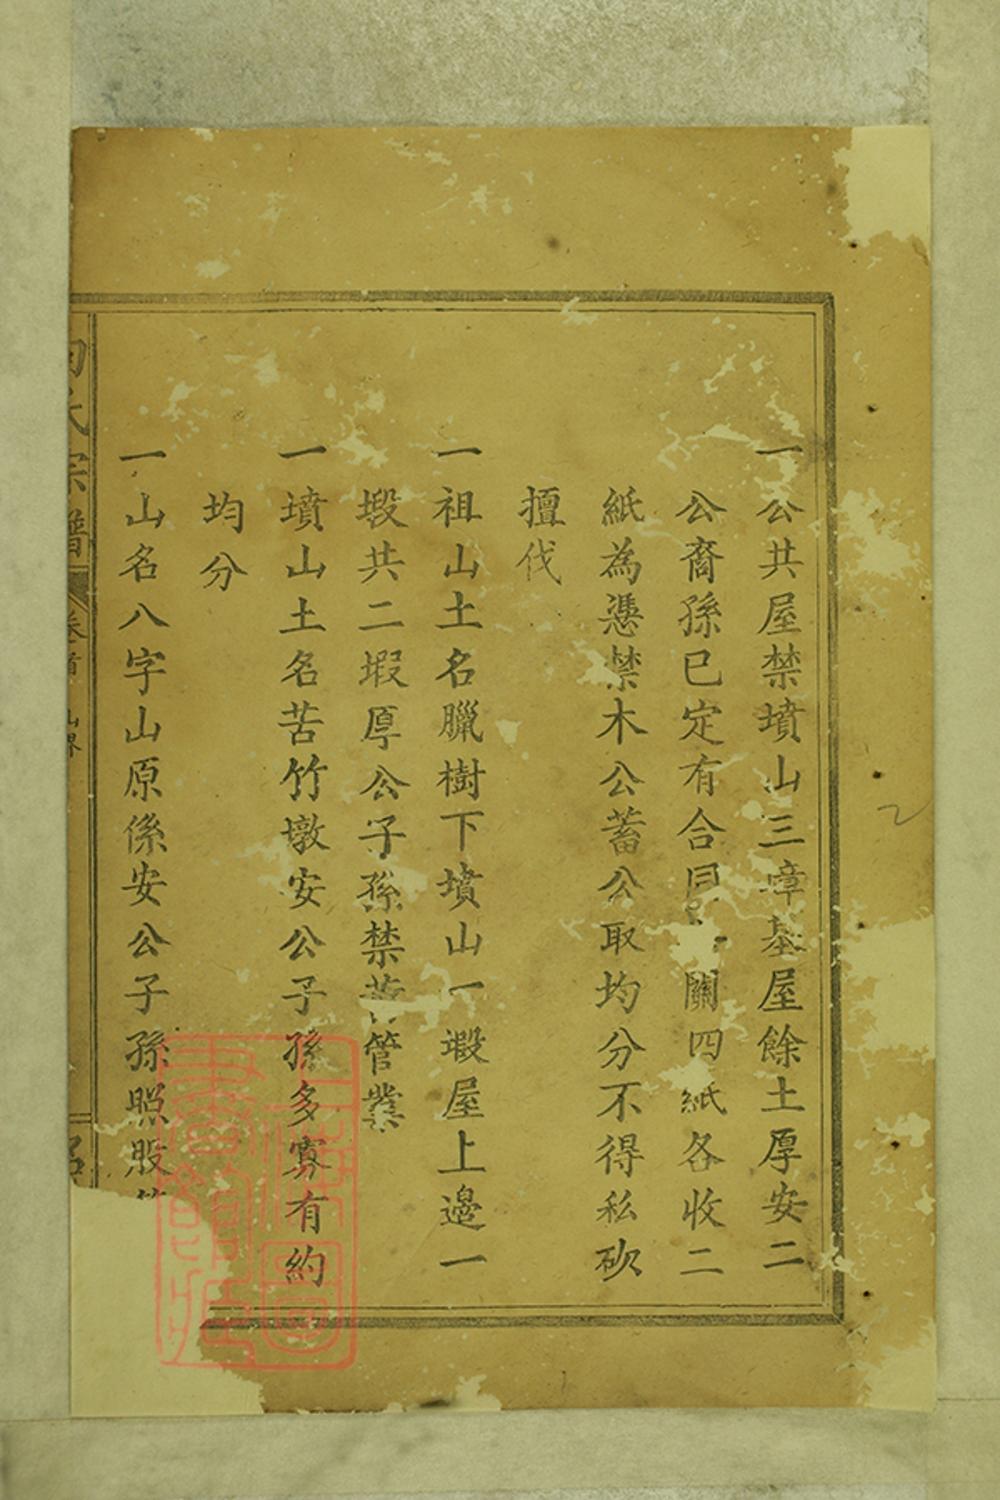 一公共屋禁墳山三嶂基屋餘土厚安二
公裔孫已定有合同 關四紙各收二
紙為憑禁木公蓄公取均分不得私砍
擅伐
一祖山土名臘樹下墳山一塅屋上邊一
塅共二塅厚公子孫禁 管業
一墳山土名苦竹墩安公子孫多寡有約
均分
一山名八字山原係安公子孫照股
氏宗譜
卷首
山界
上海圖書館藏